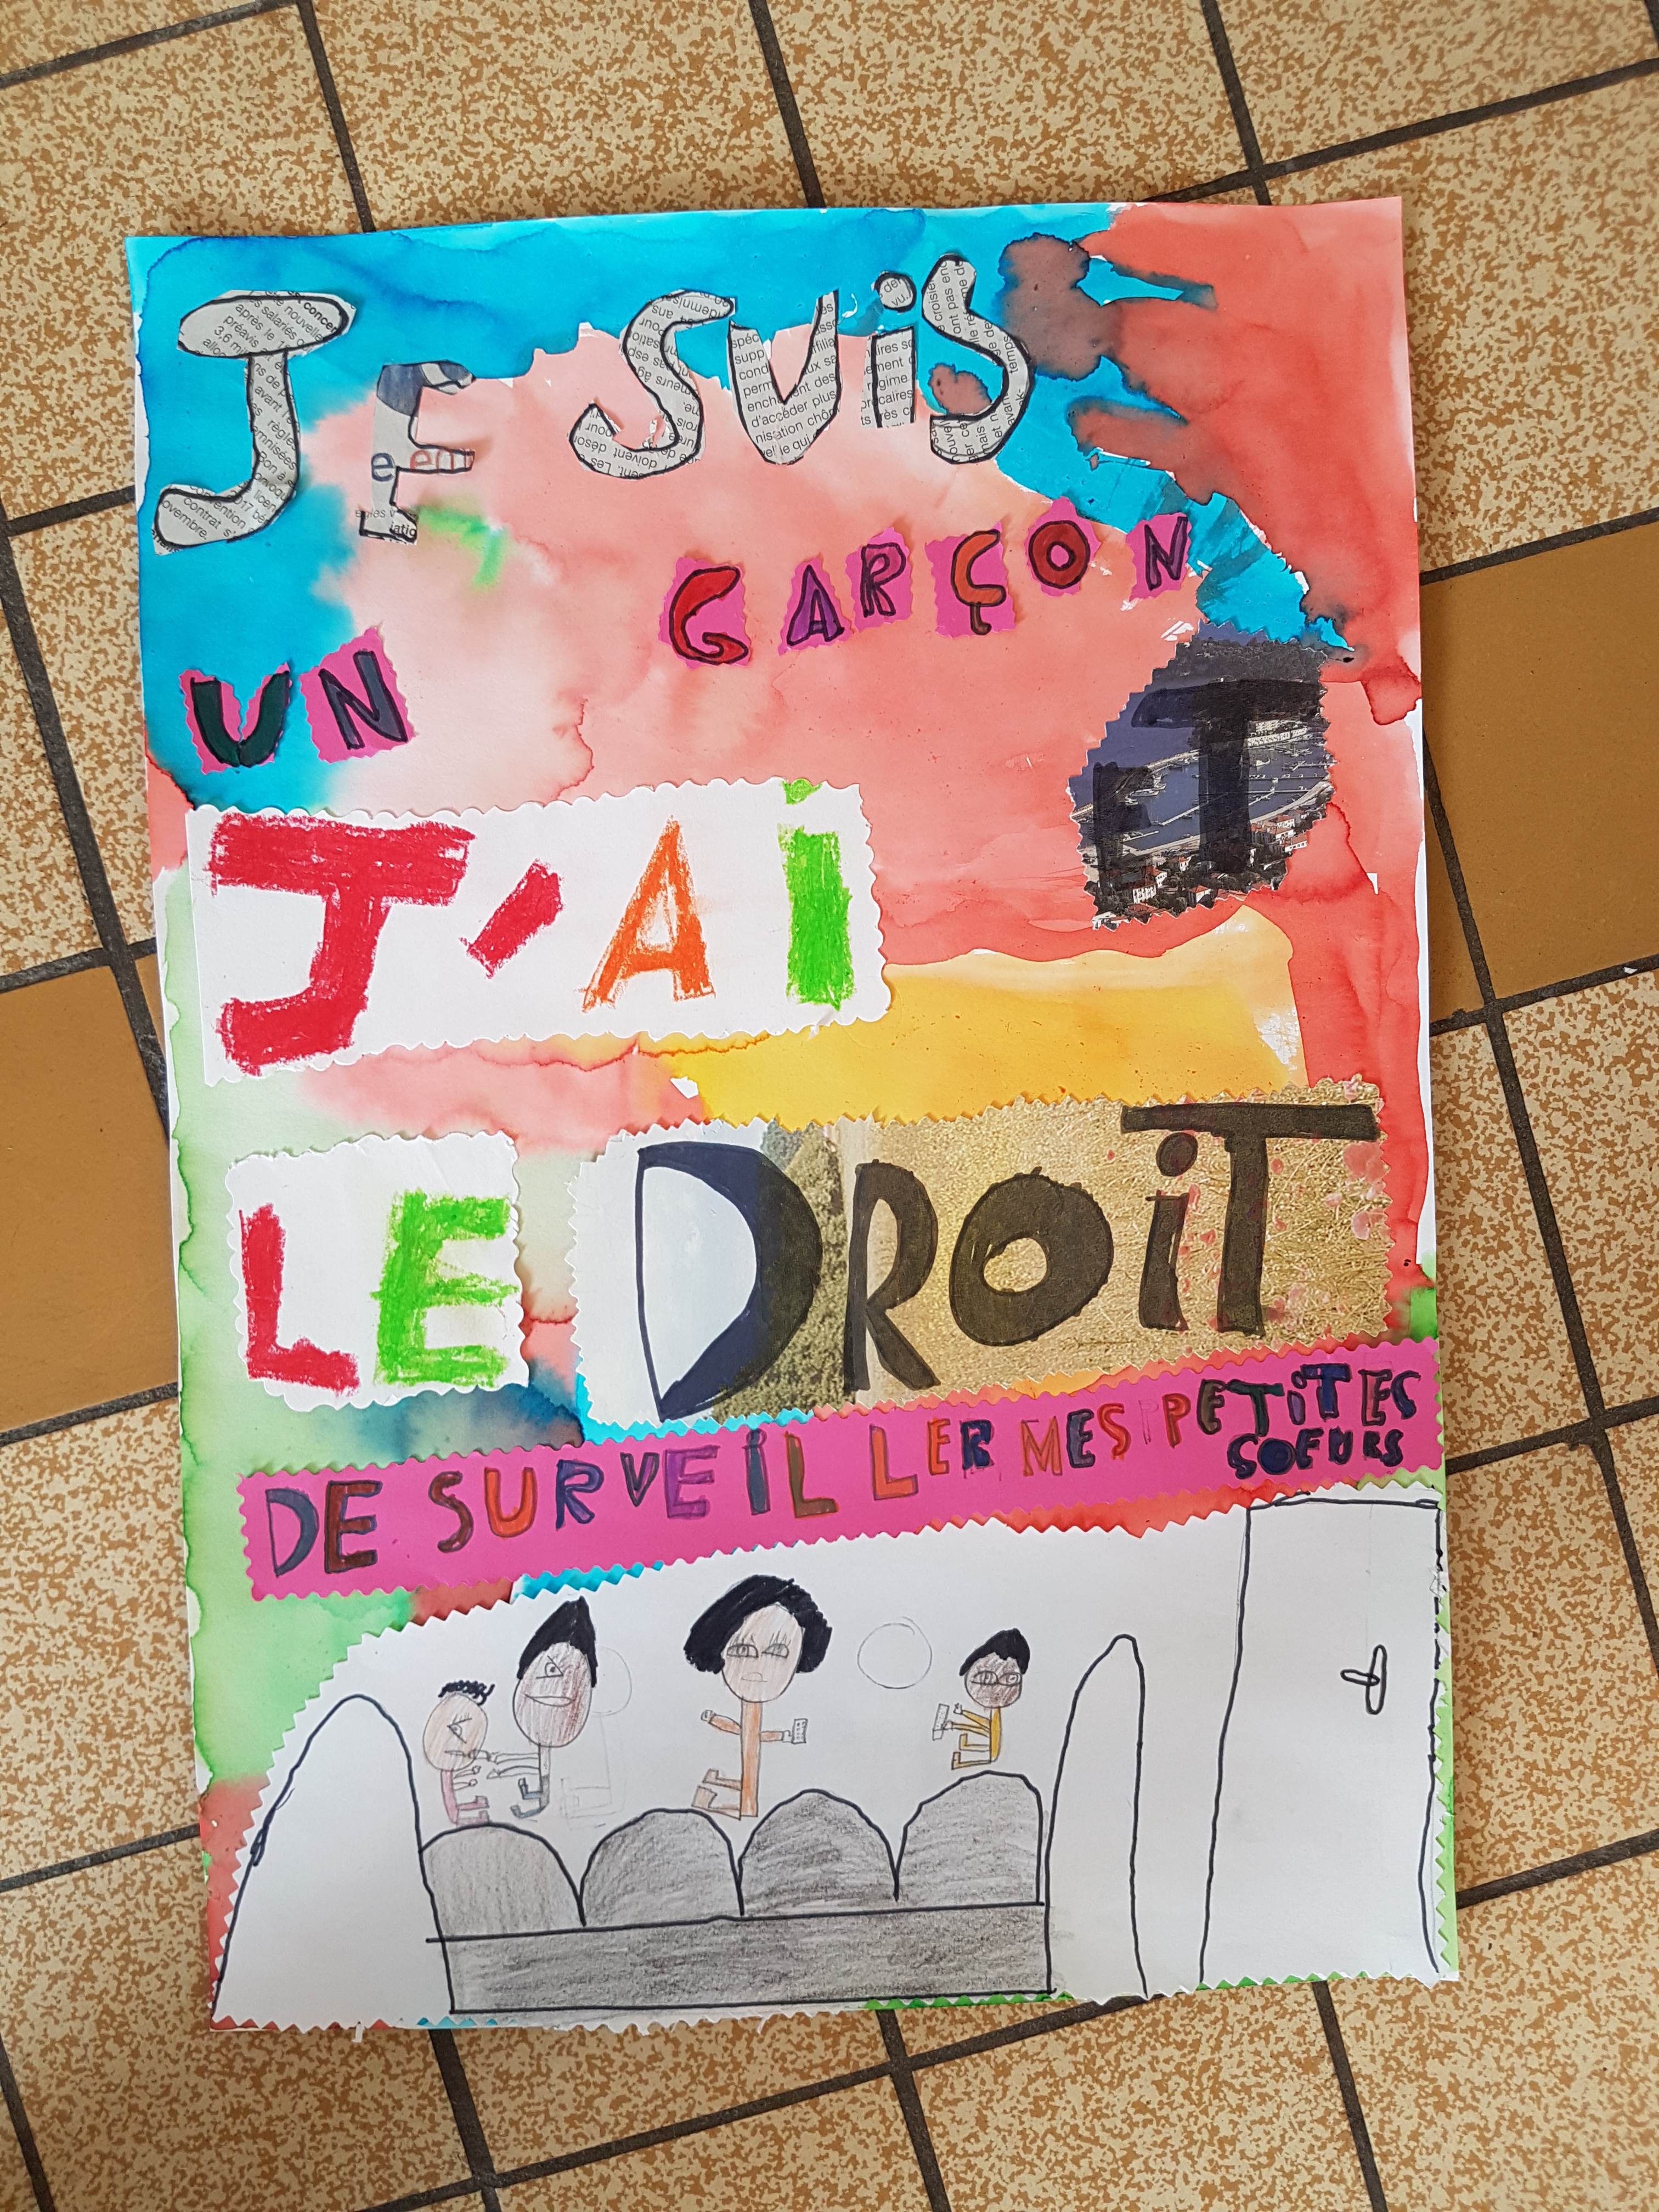 JE SUiS
UN GARÇON
ET
J'Ai
LE DROiT
DE SURVEiLLER MES PETiTES
SOEURS